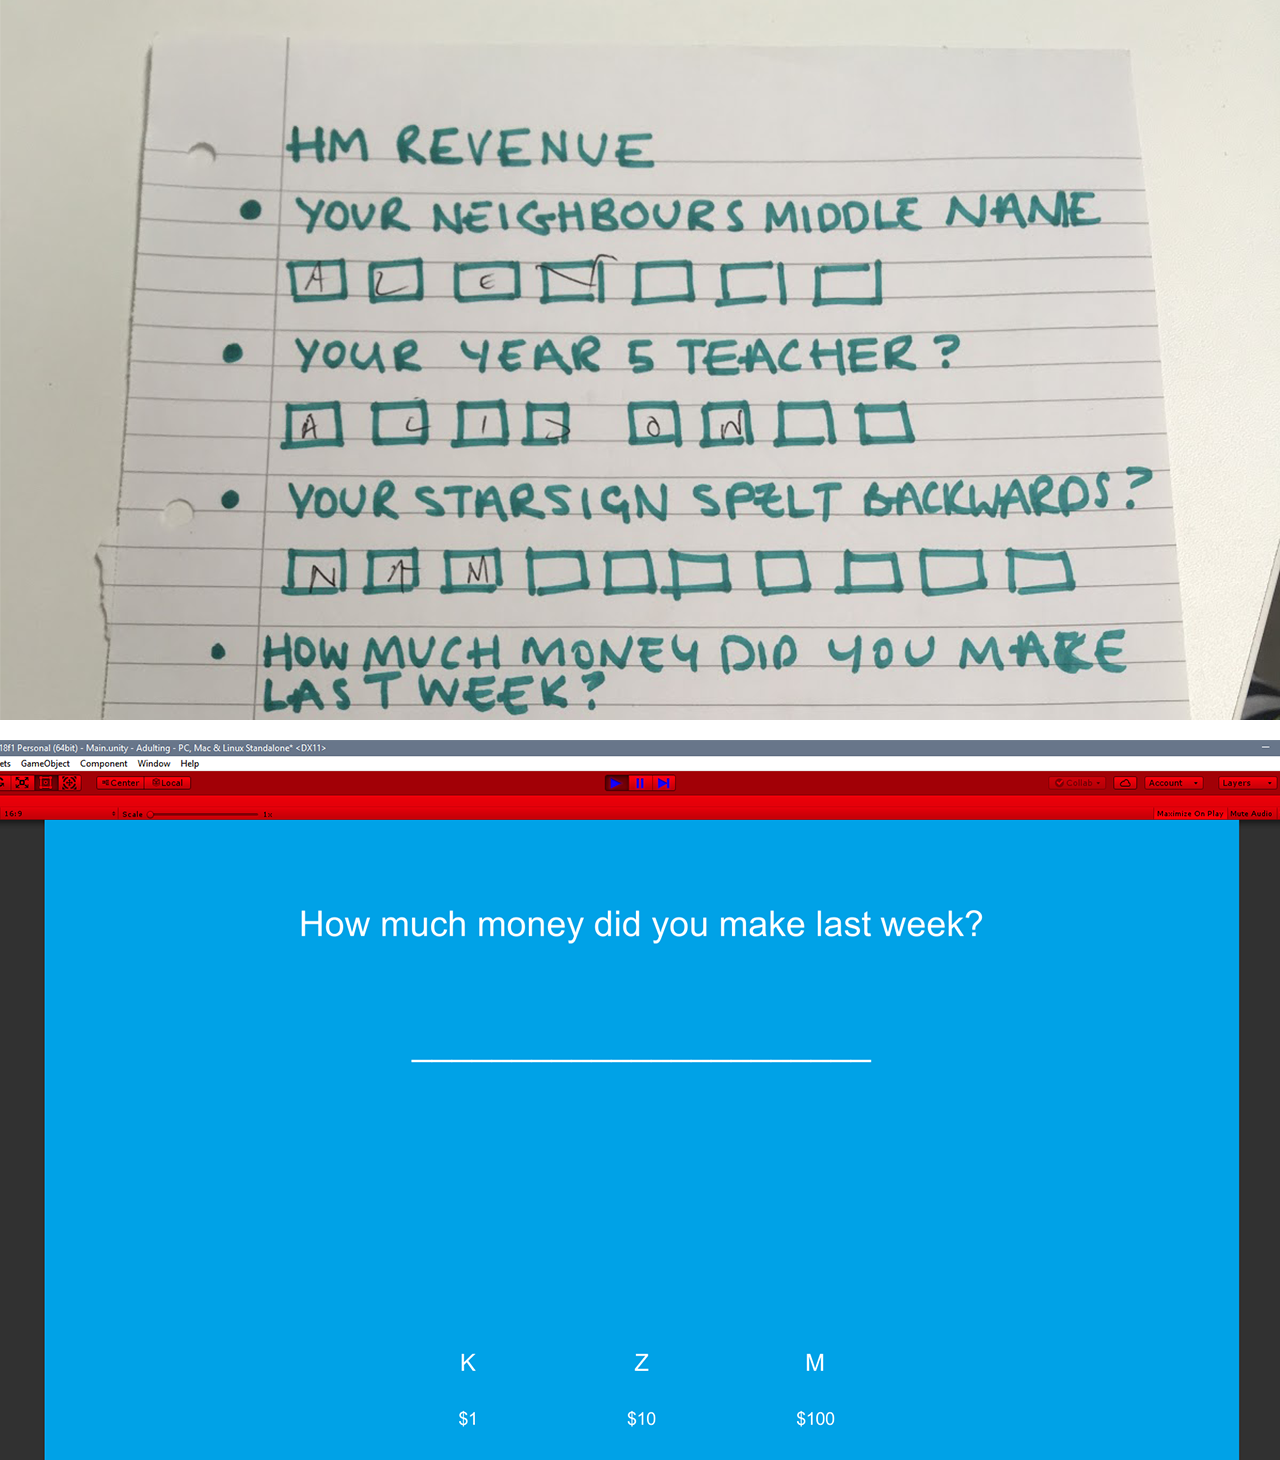 HM REVENUE
• YOUR NEIGHBOURS MIDDLE NAME
A L E N
• YOUR YEAR 5 TEACHER?
A L I S O N
• YOUR STARSIGN SPELT BACKWARDS?
N A M
• HOW MUCH MONEY DID YOU MAKE
LAST WEEK?
18f1 Personal (64bit) - Main.unity - Adulting - PC, Mac & Linux Standalone* <DX11>
ets GameObject Component Window Help
Center Local Collab Account Layers
16:9 Scale 1x Maximize On Play Mute Audio
How much money did you make last week?
K Z M
$1 $10 $100